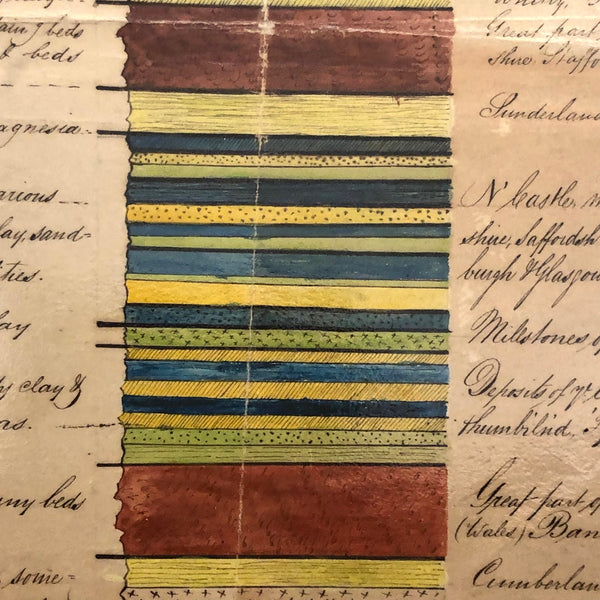 & beds
Great part
shire, Staffo
Sunderlan
agnesia
arious
lay, sand=
ties.
N'Castle,
shire, Saffordsh
burgh & Glasgow
lay
Millstones of
y clay &
as.
Deposits of
thumbil'nd.
ny beds
Great part of
(Wales) Ban
, some=
Cumberlan